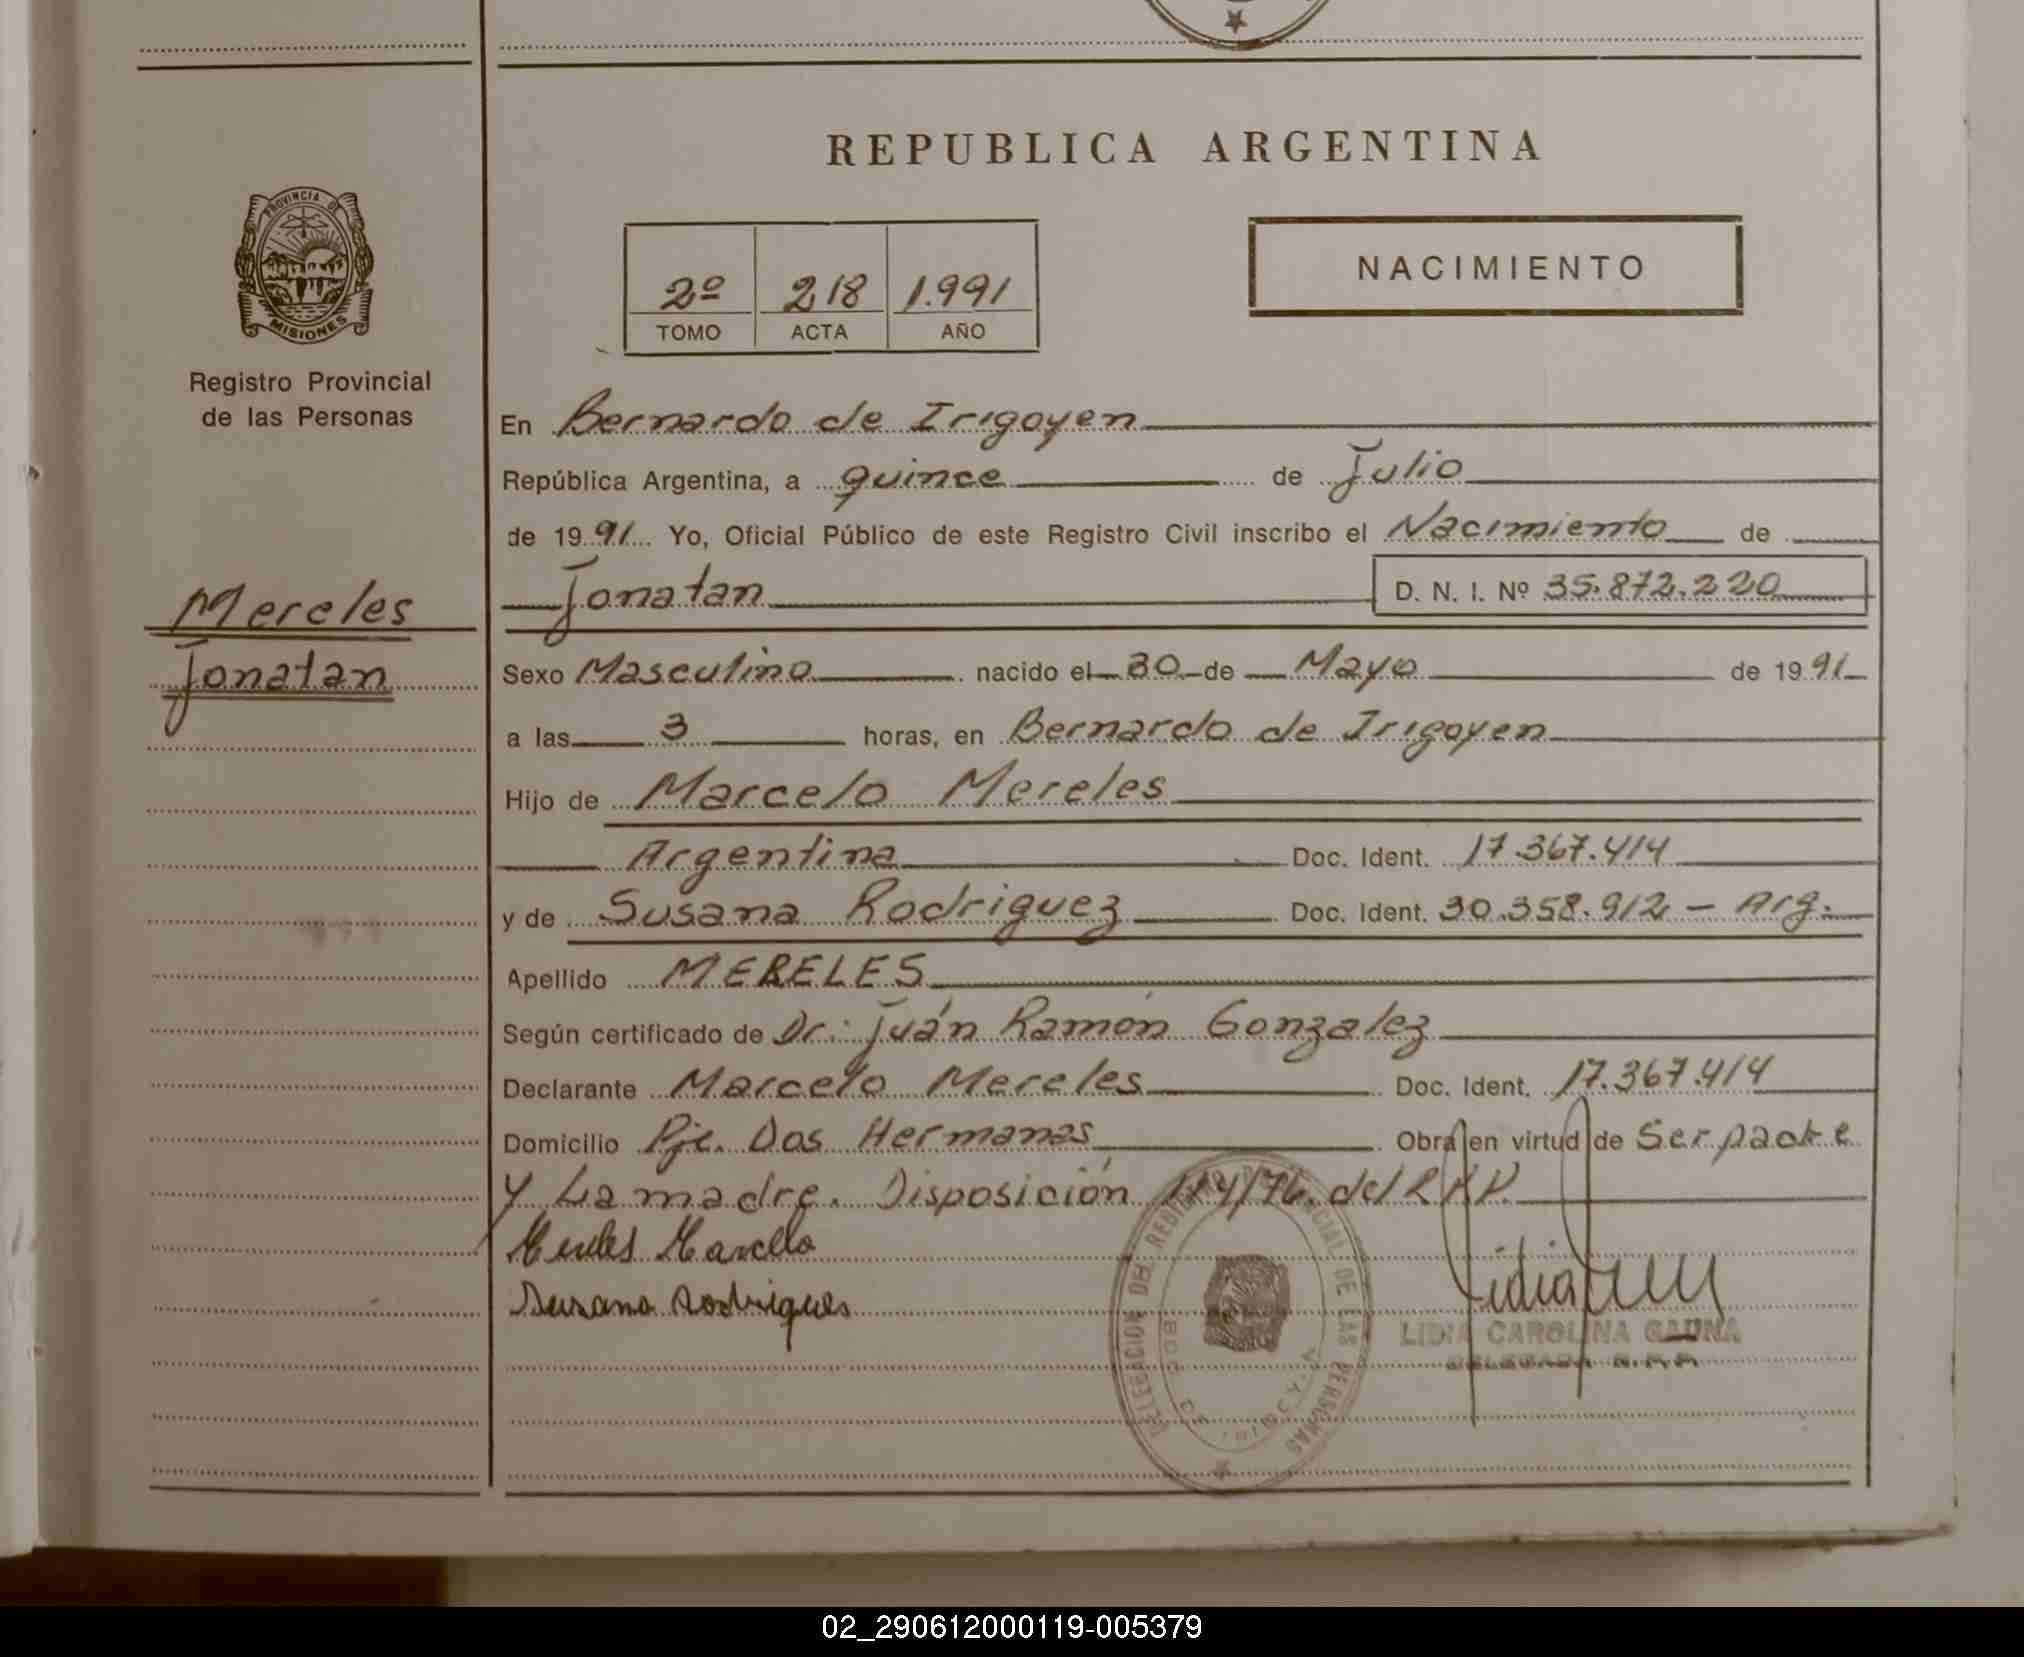 REPUBLICA ARGENTINA
PROVINCIA DE
MISIONES
Registro Provincial
de las Personas
Mereles
Jonatan
2º 218 1.991
TOMO ACTA AÑO
NACIMIENTO
En Bernardo de Irigoyen
República Argentina, a quince de Julio
de 1991 Yo, Oficial Público de este Registro Civil inscribo el Nacimiento de
Jonatan D. N. I. Nº 35.872.220
Sexo Masculino nacido el 30 de Mayo de 1991
a las 3 horas, en Bernardo de Irigoyen
Hijo de Marcelo Mereles
Argentina Doc. Ident. 17.367.414
y de Susana Rodriguez Doc. Ident. 30.358.912 - Arg.
Apellido MERELES
Según certificado de Dr: Juán Ramón Gonzalez
Declarante Marcelo Mereles Doc. Ident. 17.367.414
Domicilio Pje. Dos Hermanas Obra en virtud de Ser padre
y La madre. Disposición 114/76 del R.P.P.
Mereles Marcelo
Susana Rodrigues
DELEGACION DEL REGISTRO PROVINCIAL DE LAS PERSONAS
LIDIA CAROLINA GAUNA
DELEGADA R.P.P.
02_290612000119-005379